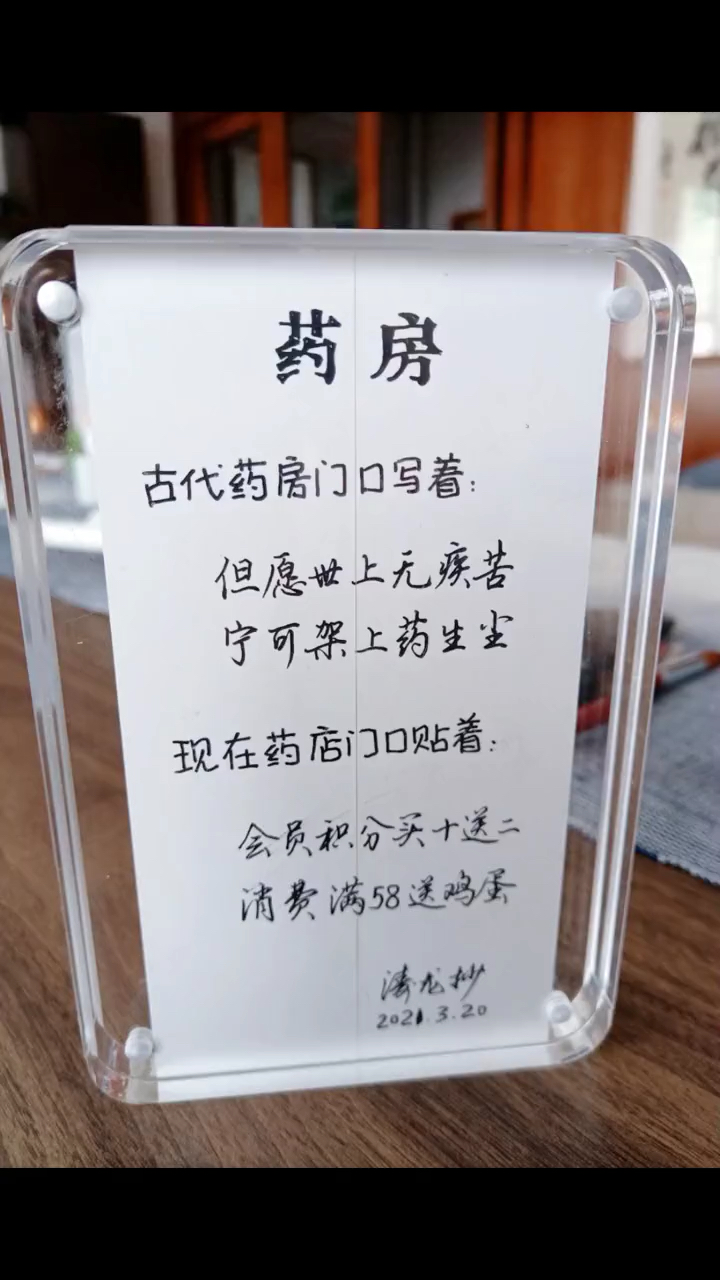 药房
古代药房门口写着:
但愿世上无疾苦
宁可架上药生尘
现在药店门口贴着:
会员积分买十送二
消费满58送鸡蛋
涛龙抄
2021.3.20